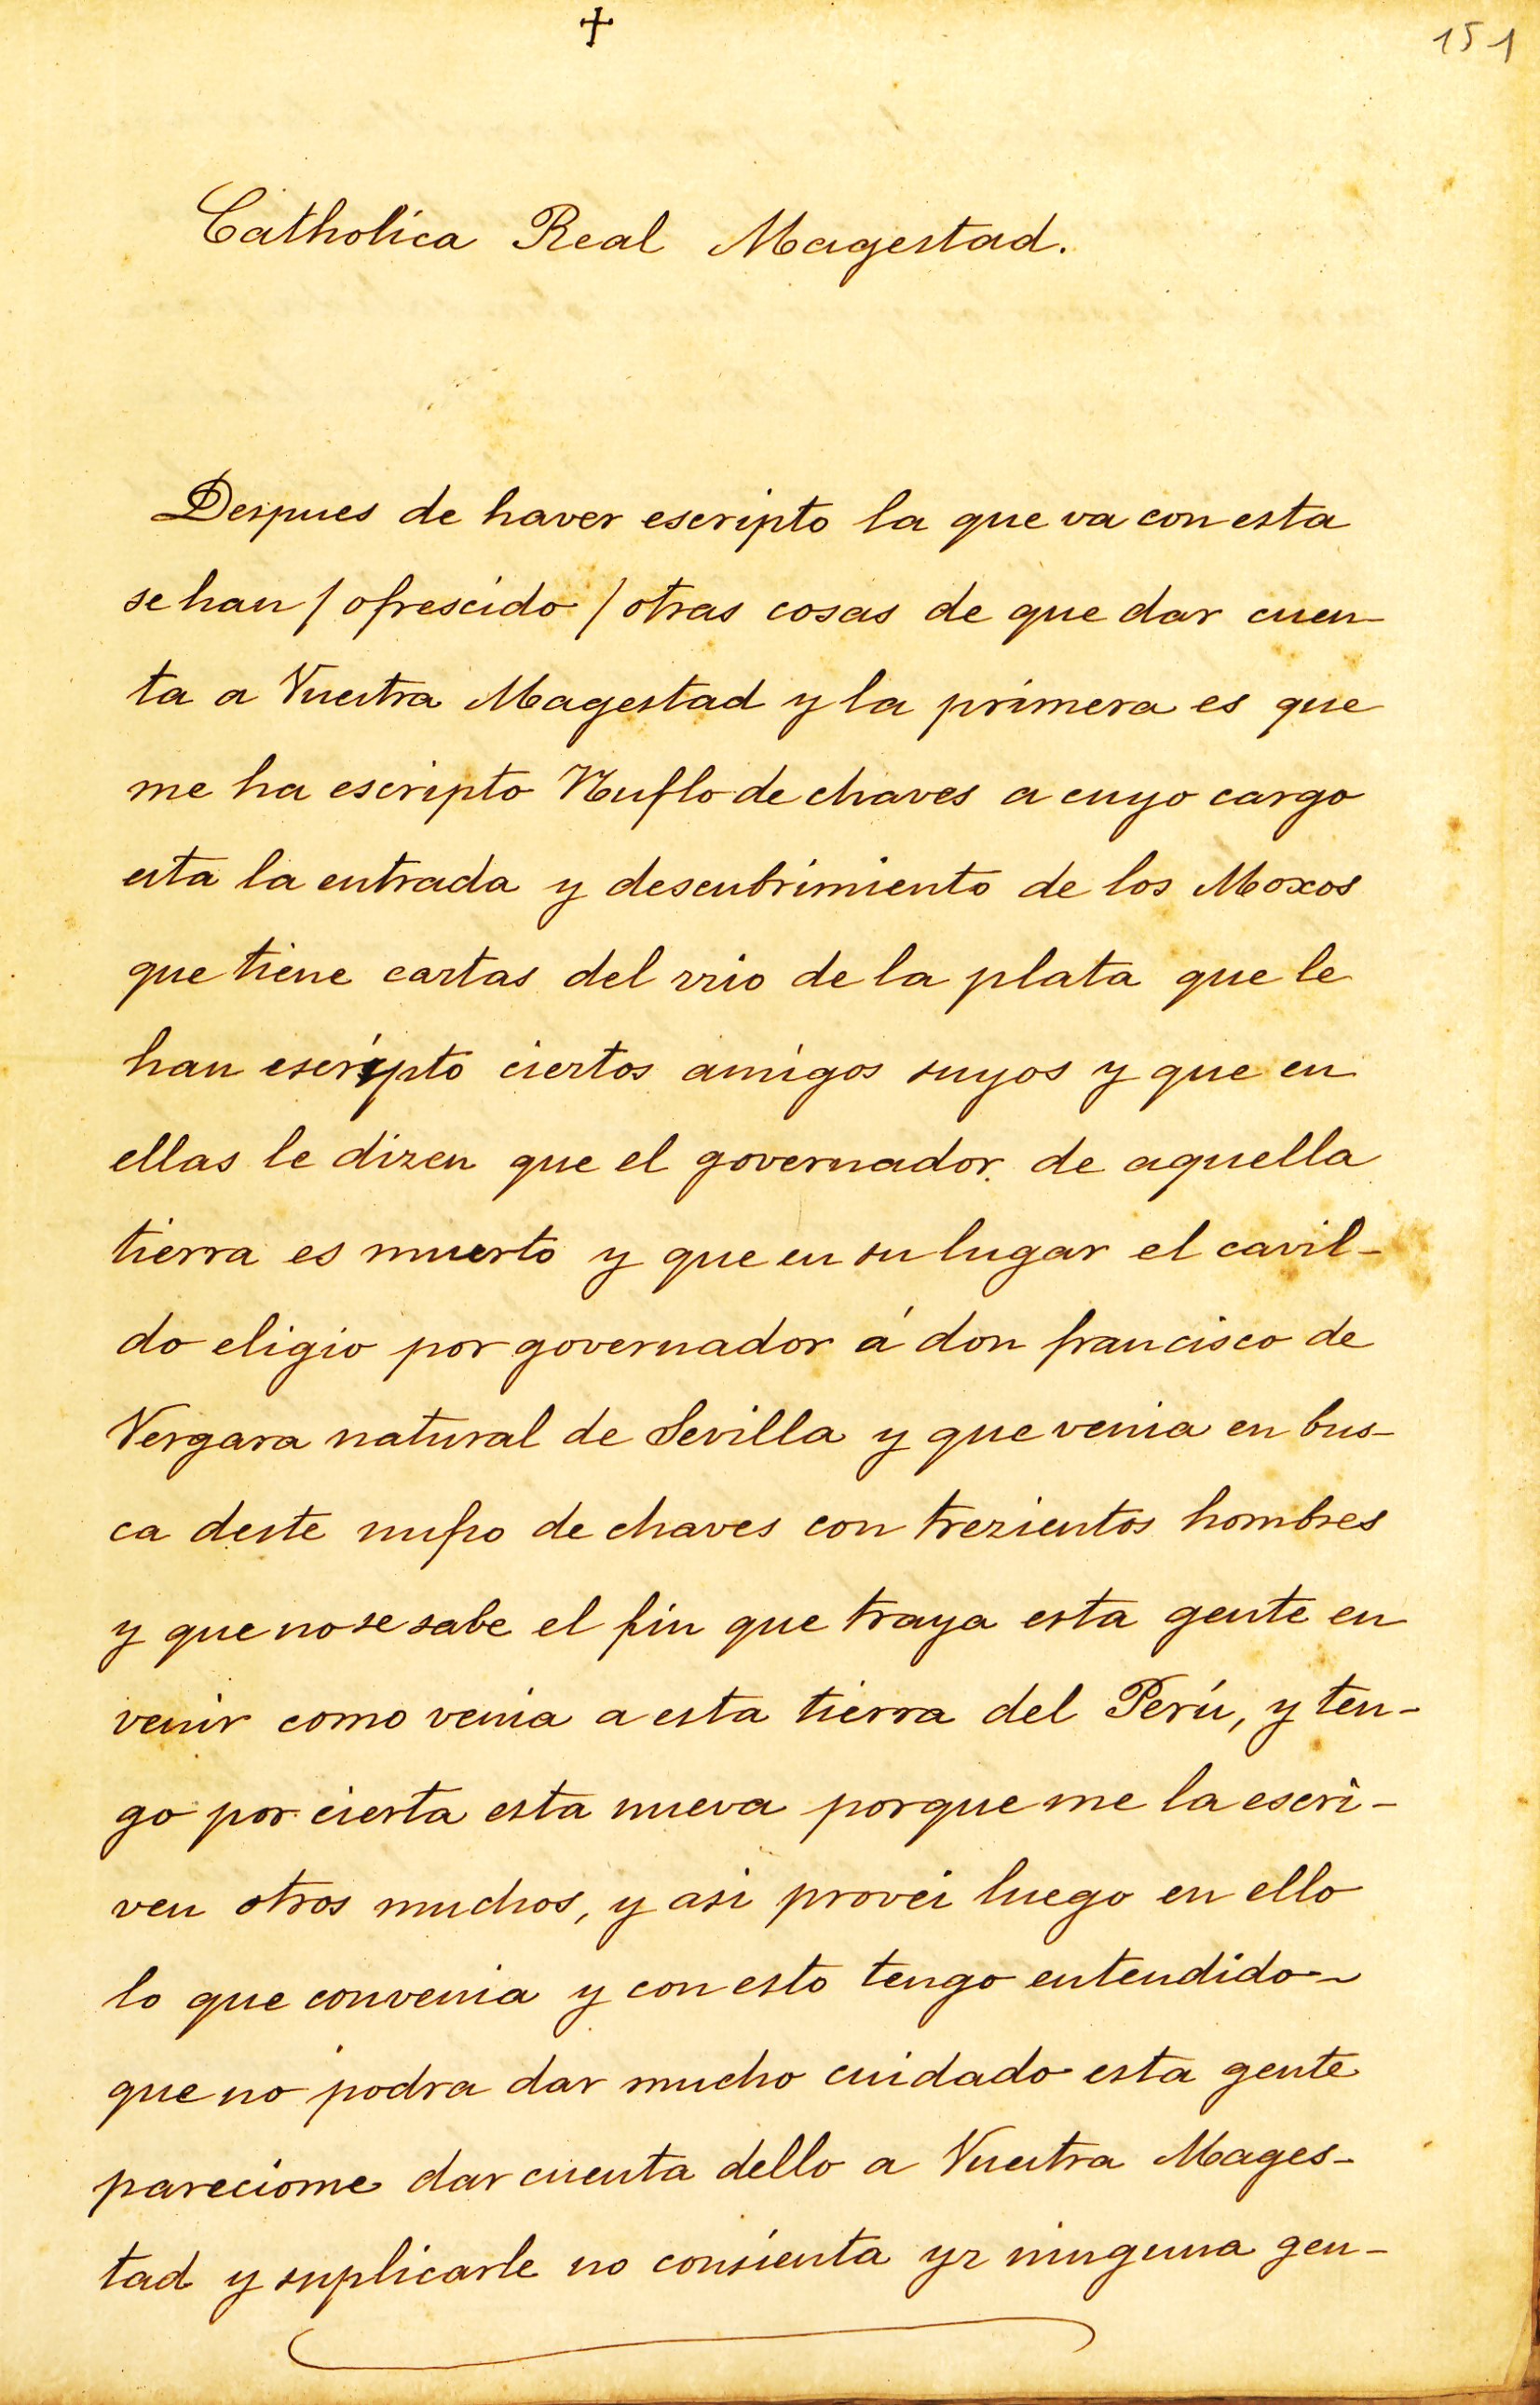 +
151
Catholica Real Magestad.
Despues de haver escripto la que va con esta
se han / ofrescido / otras cosas de que dar cuen-
ta a Vuestra Magestad y la primera es que
me ha escripto Nuflo de chaves a cuyo cargo
esta la entrada y descubrimiento de los Moxos
que tiene cartas del rrio de la plata que le
han escripto ciertos amigos suyos y que en
ellas le dizen que el governador de aquella
tierra es muerto y que en su lugar el cavil-
do eligio por governador á don francisco de
Vergara natural de Sevilla y que venia en bus-
ca deste nufro de chaves con trezientos hombres
y que no se sabe el fin que traya esta gente en
venir como venia a esta tierra del Perú, y ten-
go por cierta esta nueva porque me la escri-
ven otros muchos, y asi provei luego en ello
lo que convenia y con esto tengo entendido
que no podra dar mucho cuidado esta gente
pareciome dar cuenta dello a Vuestra Mages-
tad y suplicarle no consienta yr ninguna gen-